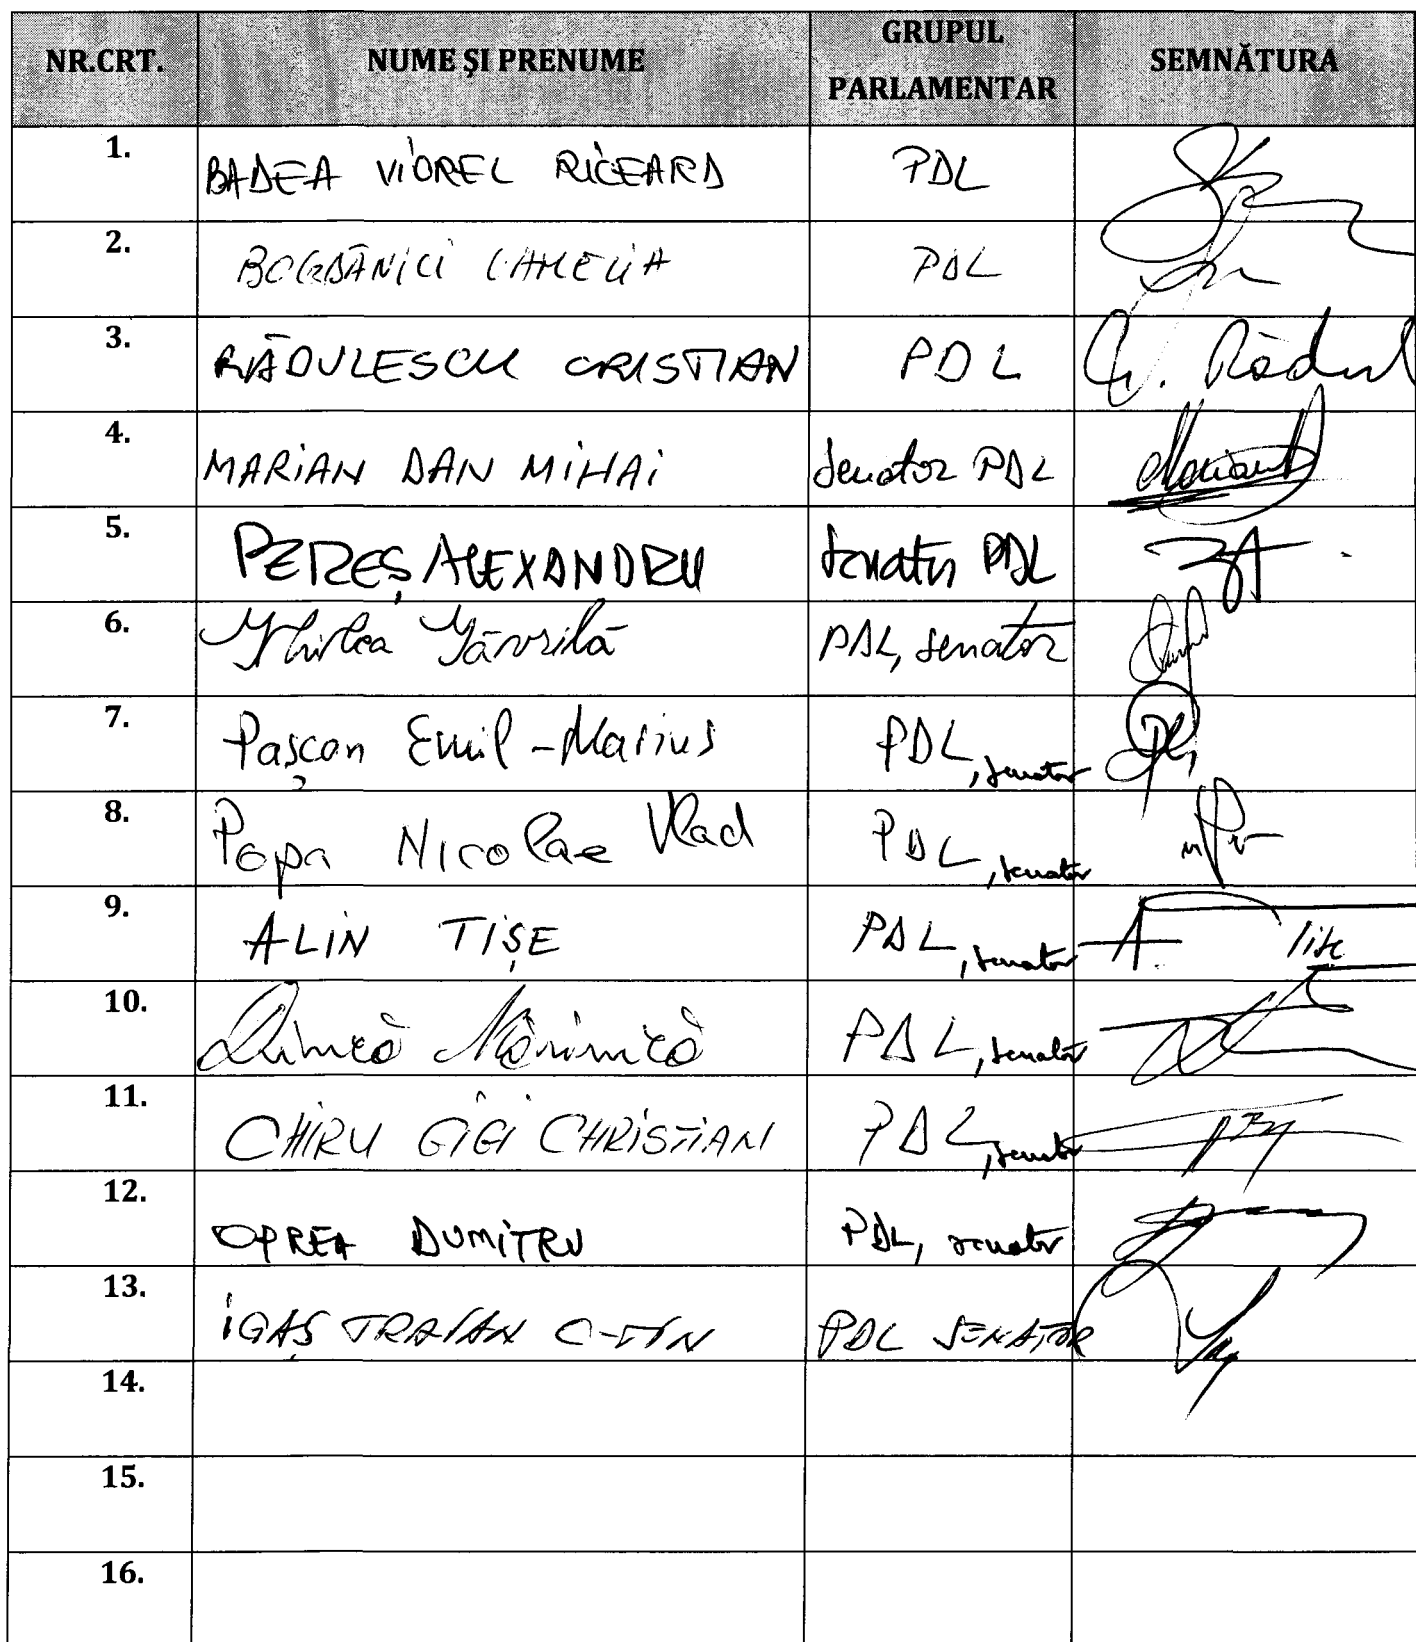 NR.CRT. NUME ŞI PRENUME GRUPUL PARLAMENTAR SEMNĂTURA
1. BADEA VIOREL RICEARD PDL
2. BOGDĂNICI CAMELIA PDL
3. RĂDULESCU CRISTIAN PDL Cr. Rădul
4. MARIAN DAN MIHAI Senator PDL Marian
5. PEREȘ ALEXANDRU Senator PDL
6. Ghilea Găvrilă PDL, senator
7. Pașcan Emil-Marius PDL, senator
8. Popa Nicolae Vlad PDL, senator
9. ALIN TIȘE PDL, senator A. Tișe
10. Dincă Mărinică PDL, senator
11. CHIRU GIGI CHRISTIAN PDL, senator
12. OPREA DUMITRU PDL, senator
13. IGAȘ TRAIAN C-TIN PDL SENATOR
14.
15.
16.